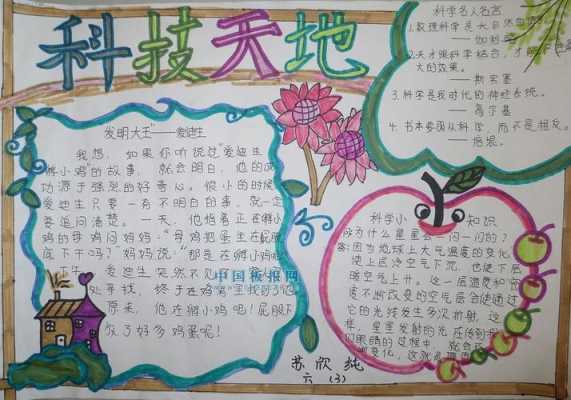 科技天地
科学名人名言
1.数理科学是大自然
—— 伽利略
2.天才跟科学结合，才能
大的效果。
—— 斯宾塞
3.科学是我时代的神经系统。
—— 高尔基
4.书本要随从科学，而不是相反。
—— 培根
发明大王"——爱迪生
我想，如果你听说过"爱迪生
孵小鸡"的故事，就会明白，他的成
功源于强烈的好奇心。很小的时候
爱迪生只要一有不明白的事，就一定
要追问清楚。一天，他指着正在孵小
鸡的母鸡问妈妈："母鸡把蛋坐在屁股
底下干吗？"妈妈说："那是在孵小鸡
午，爱迪生突然不见
处寻找，终于在鸡窝里找到了他
原来，他在孵小鸡呢！屁股下
放了好多鸡蛋呢！
中国板报网
科学小知识
问为什么星星会一闪一闪的？
答：因为地球上大气温度的变化
使上层冷空气下沉，也使下层
暖空气上升。这一层温度和密
度不断改变的空气层会使通过
它的光线发生多次折射，这
样，星星发射的光在传到
们眼睛的过程中，就会
变化，这就
苏欣纯
六（3）